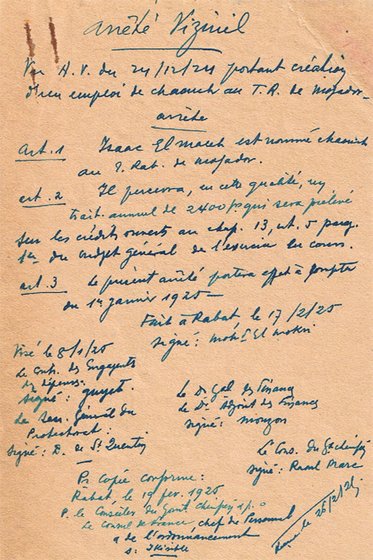 arrêté Viziriel
Vu A.V. du 24/12/24 portant création
d'un emploi de chaouch au T.R. de Mogador
arrête
art. 1 Isaac El maleh est nommé chaouch
au T. Rab. de Mogador.
art. 2 Il percevra, en cette qualité, un
trait. annuel de 2400 frs qui sera prélevé
sur les crédits ouverts au chap. 13, art. 5 parag.
1er du budget général de l'exercice en cours.
art. 3 Le présent arrêté portera effet à compter
du 1er janvier 1925 —
Fait à Rabat le 17/2/25
signé: Moh. El Mokri
Visé le 8/1/25
Le Cont. des Engagements
de dépenses.
signé: guyot
Le Sec. Général du
Protectorat:
signé: D. de St Quentin
Le D. Gal des Finances
Le Dr Adjoint des Finances
signé:
Le Cons. du Gt chérifien
signé: Raoul Marc
Pr Copie conforme:
Rabat, le 19 fev. 1925
P. le Conseiller du Gouvt chérifien p.o
Le Consul de France, chef du Personnel
& de l'ordonnancement
s: Illisible
le 26/2/25